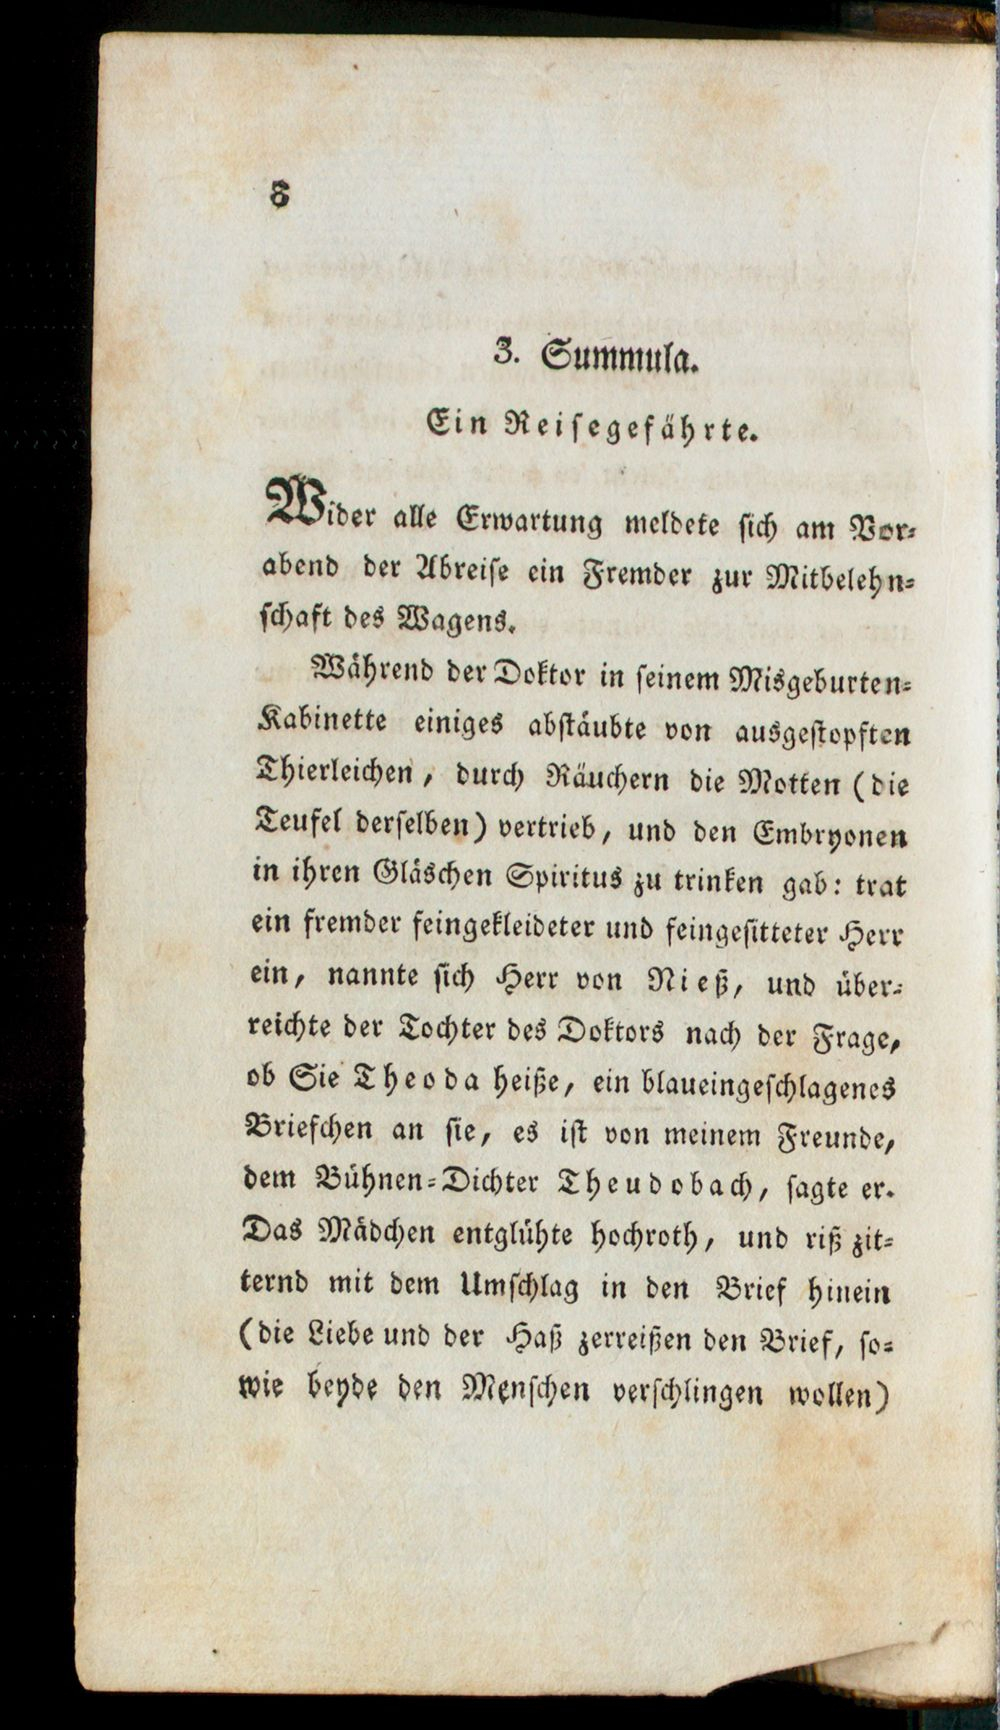 8
3. Summula.
Ein Reisegefährte.
Wider alle Erwartung meldete sich am Vor-
abend der Abreise ein Fremder zur Mitbelehn-
schaft des Wagens.
Während der Doktor in seinem Misgeburten-
Kabinette einiges abstäubte von ausgestopften
Thierleichen, durch Räuchern die Motten (die
Teufel derselben) vertrieb, und den Embryonen
in ihren Gläschen Spiritus zu trinken gab: trat
ein fremder feingekleideter und feingesitteter Herr
ein, nannte sich Herr von Nieß, und über-
reichte der Tochter des Doktors nach der Frage,
ob Sie Theoda heiße, ein blaueingeschlagenes
Briefchen an sie, es ist von meinem Freunde,
dem Bühnen-Dichter Theudobach, sagte er.
Das Mädchen entglühte hochroth, und riß zit-
ternd mit dem Umschlag in den Brief hinein
(die Liebe und der Haß zerreißen den Brief, so-
wie beyde den Menschen verschlingen wollen)